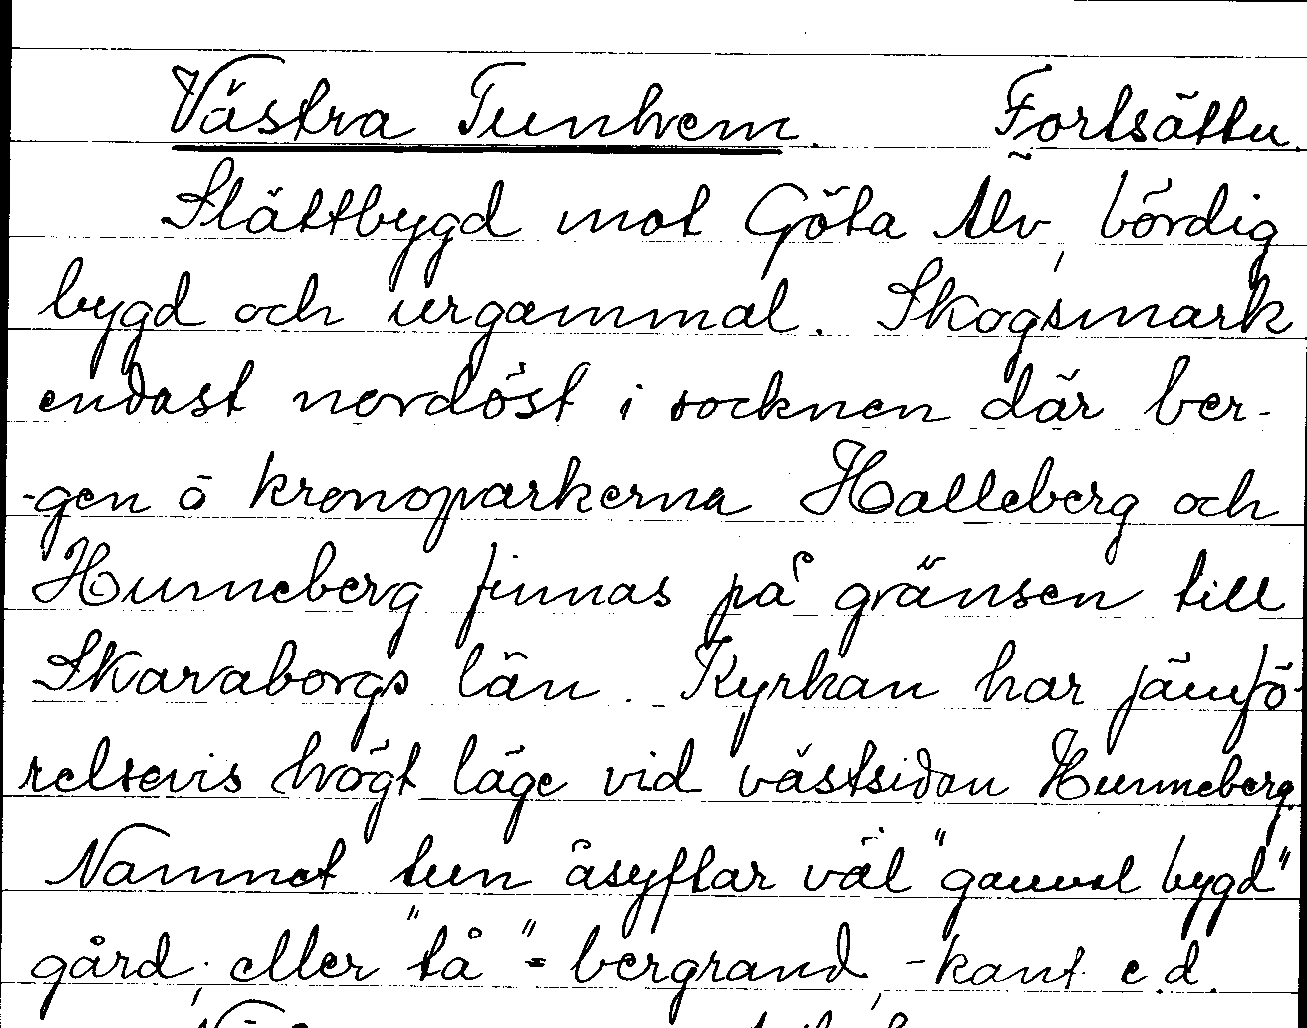 Västra Tunhem. Fortsättn.
Slättbygd mot Göta Älv, bördig
bygd och urgammal. Skogsmark
endast nordöst i socknen där ber-
-gen å kronoparkerna Halleberg och
Hunneberg finnas på gränsen till
Skaraborgs län. Kyrkan har jämfö-
relsevis högt läge vid västsidan Hunneberg.
Namnet tun åsyftar väl "gammal bygd"
gård, eller "tå" = bergrand, -kant e.d.